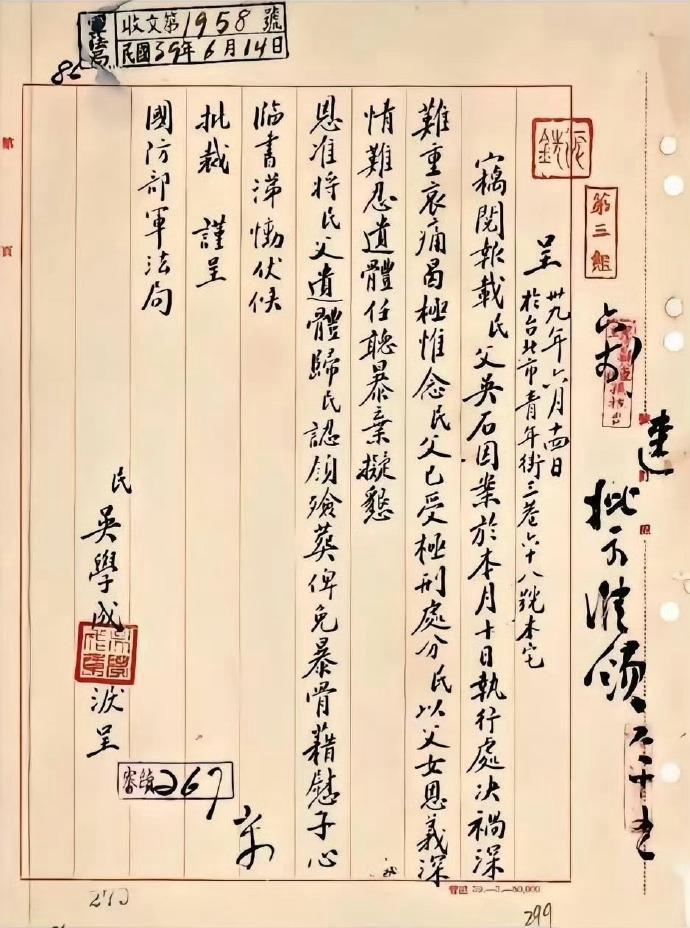 收文第1958號
民國39年6月14日
第三組
呈 卅九年六月十四日
於台北市青年街三巷六十八號本宅
竊閱報載民父吳石因案於本月十日執行處決禍深
難重哀痛曷極惟念民父已受極刑處分民以父女恩義深
情難忍遺體任聽暴棄擬懇
恩准將民父遺體歸民認領殮葬俾免暴骨藉慰子心
臨書涕慟伏候
批裁 謹呈
國防部軍法局
民 吳學成 淚呈
267
批示准領
273
299